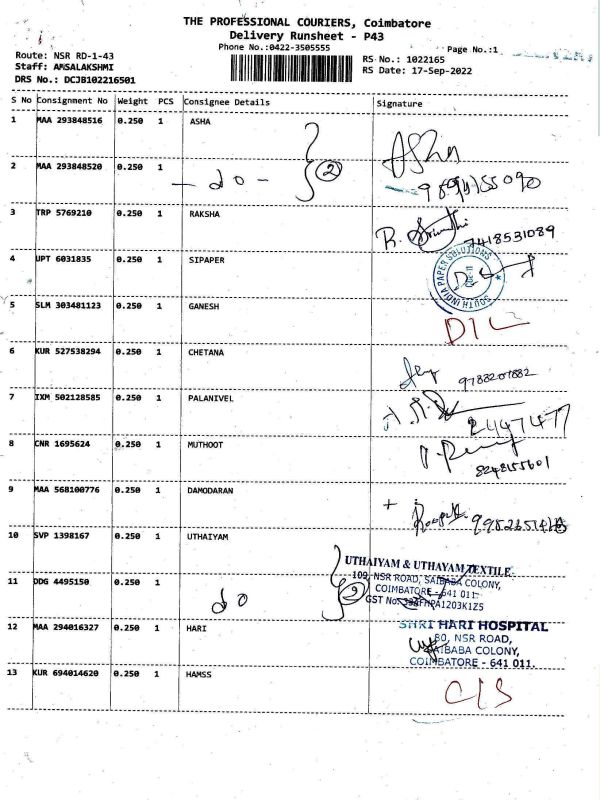 THE PROFESSIONAL COURIERS, Coimbatore
Delivery Runsheet - P43
Phone No.:0422-3505555
Page No.:1
Route: NSR RD-1-43
Staff: AMSALAKSHMI
DRS No.: DCJB102216501
RS No.: 1022165
RS Date: 17-Sep-2022
S No Consignment No Weight PCS Consignee Details Signature
1 MAA 293848516 0.250 1 ASHA Asha
2 MAA 293848520 0.250 1 - do - 2
3 TRP 5769210 0.250 1 RAKSHA R. 7418531089
4 UPT 6031835 0.250 1 SIPAPER SOUTH INDIA PAPER SOLUTIONS
5 SLM 303481123 0.250 1 GANESH
6 KUR 527538294 0.250 1 CHETANA 9788207882
7 IXM 502128585 0.250 1 PALANIVEL 2447477
8 CNR 1695624 0.250 1 MUTHOOT 8248155601
9 MAA 568100776 0.250 1 DAMODARAN
10 SVP 1398167 0.250 1 UTHAIYAM
UTHAIYAM & UTHAYAM TEXTILE
109, NSR ROAD, SAIBABA COLONY,
COIMBATORE - 641 011.
GST No.
11 DDG 4495150 0.250 1 do 2
12 MAA 294016327 0.250 1 HARI
SHRI HARI HOSPITAL
80, NSR ROAD,
SAIBABA COLONY,
COIMBATORE - 641 011.
13 KUR 694014620 0.250 1 HAMSS C/S